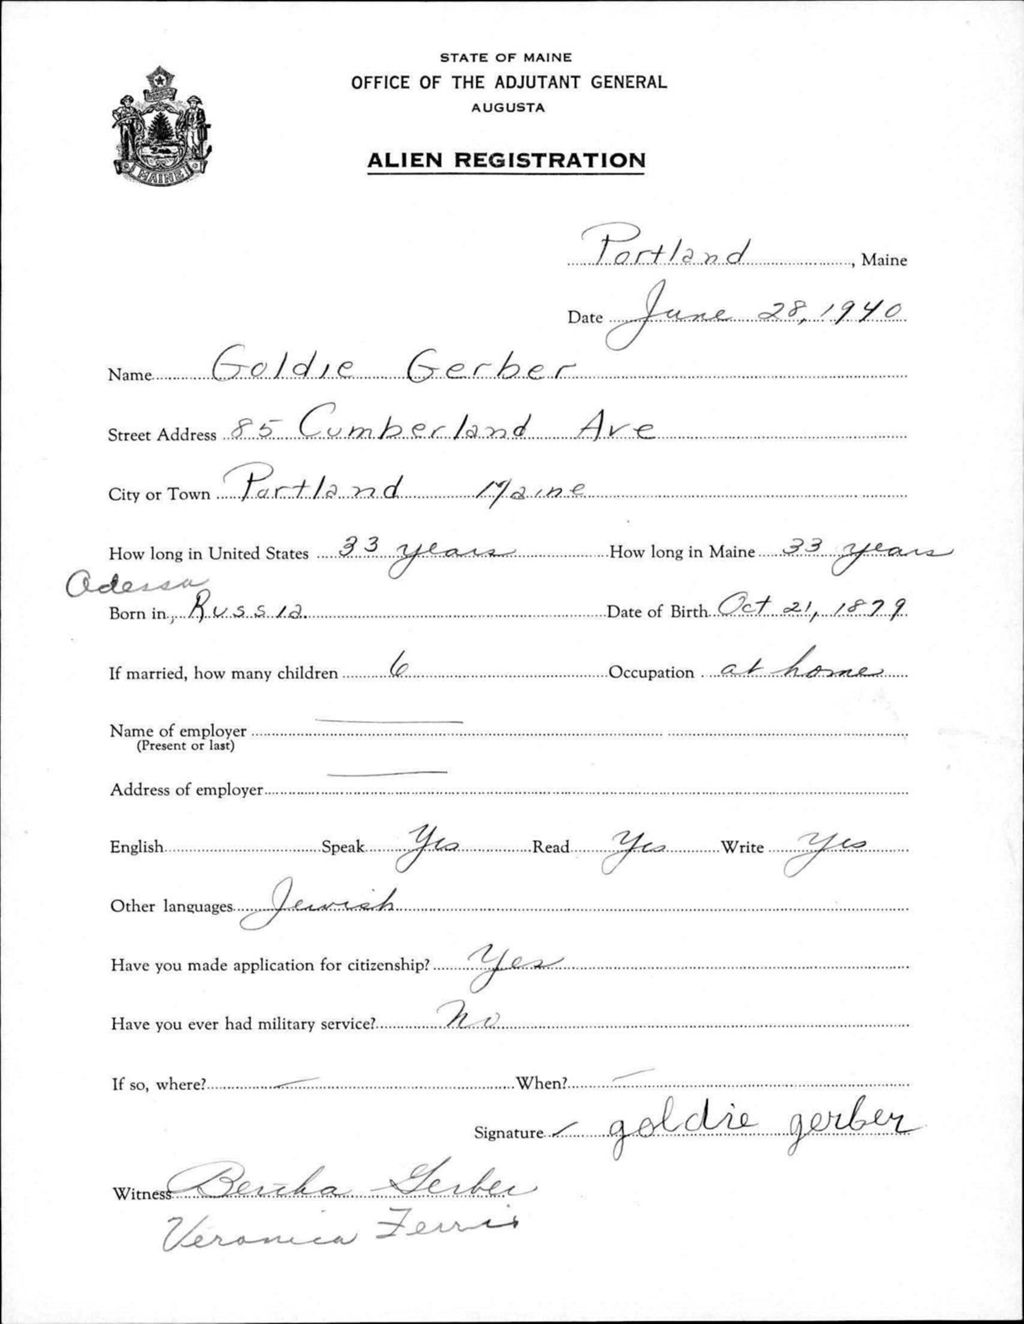 STATE OF MAINE
OFFICE OF THE ADJUTANT GENERAL
AUGUSTA
ALIEN REGISTRATION
MAINE
Portland, Maine
Date June 28, 1940
Name Goldie Gerber
Street Address 85 Cumberland Ave
City or Town Portland Maine
How long in United States 33 years How long in Maine 33 years
Odessa
Born in, Russia. Date of Birth Oct 21, 1879
If married, how many children 6 Occupation at home
Name of employer
(Present or last)
Address of employer
English Speak Yes Read Yes Write Yes
Other languages Jewish
Have you made application for citizenship? Yes
Have you ever had military service? No
If so, where? — When? —
Signature goldie gerber
Witness Bertha Gerber
Veronica Ferris